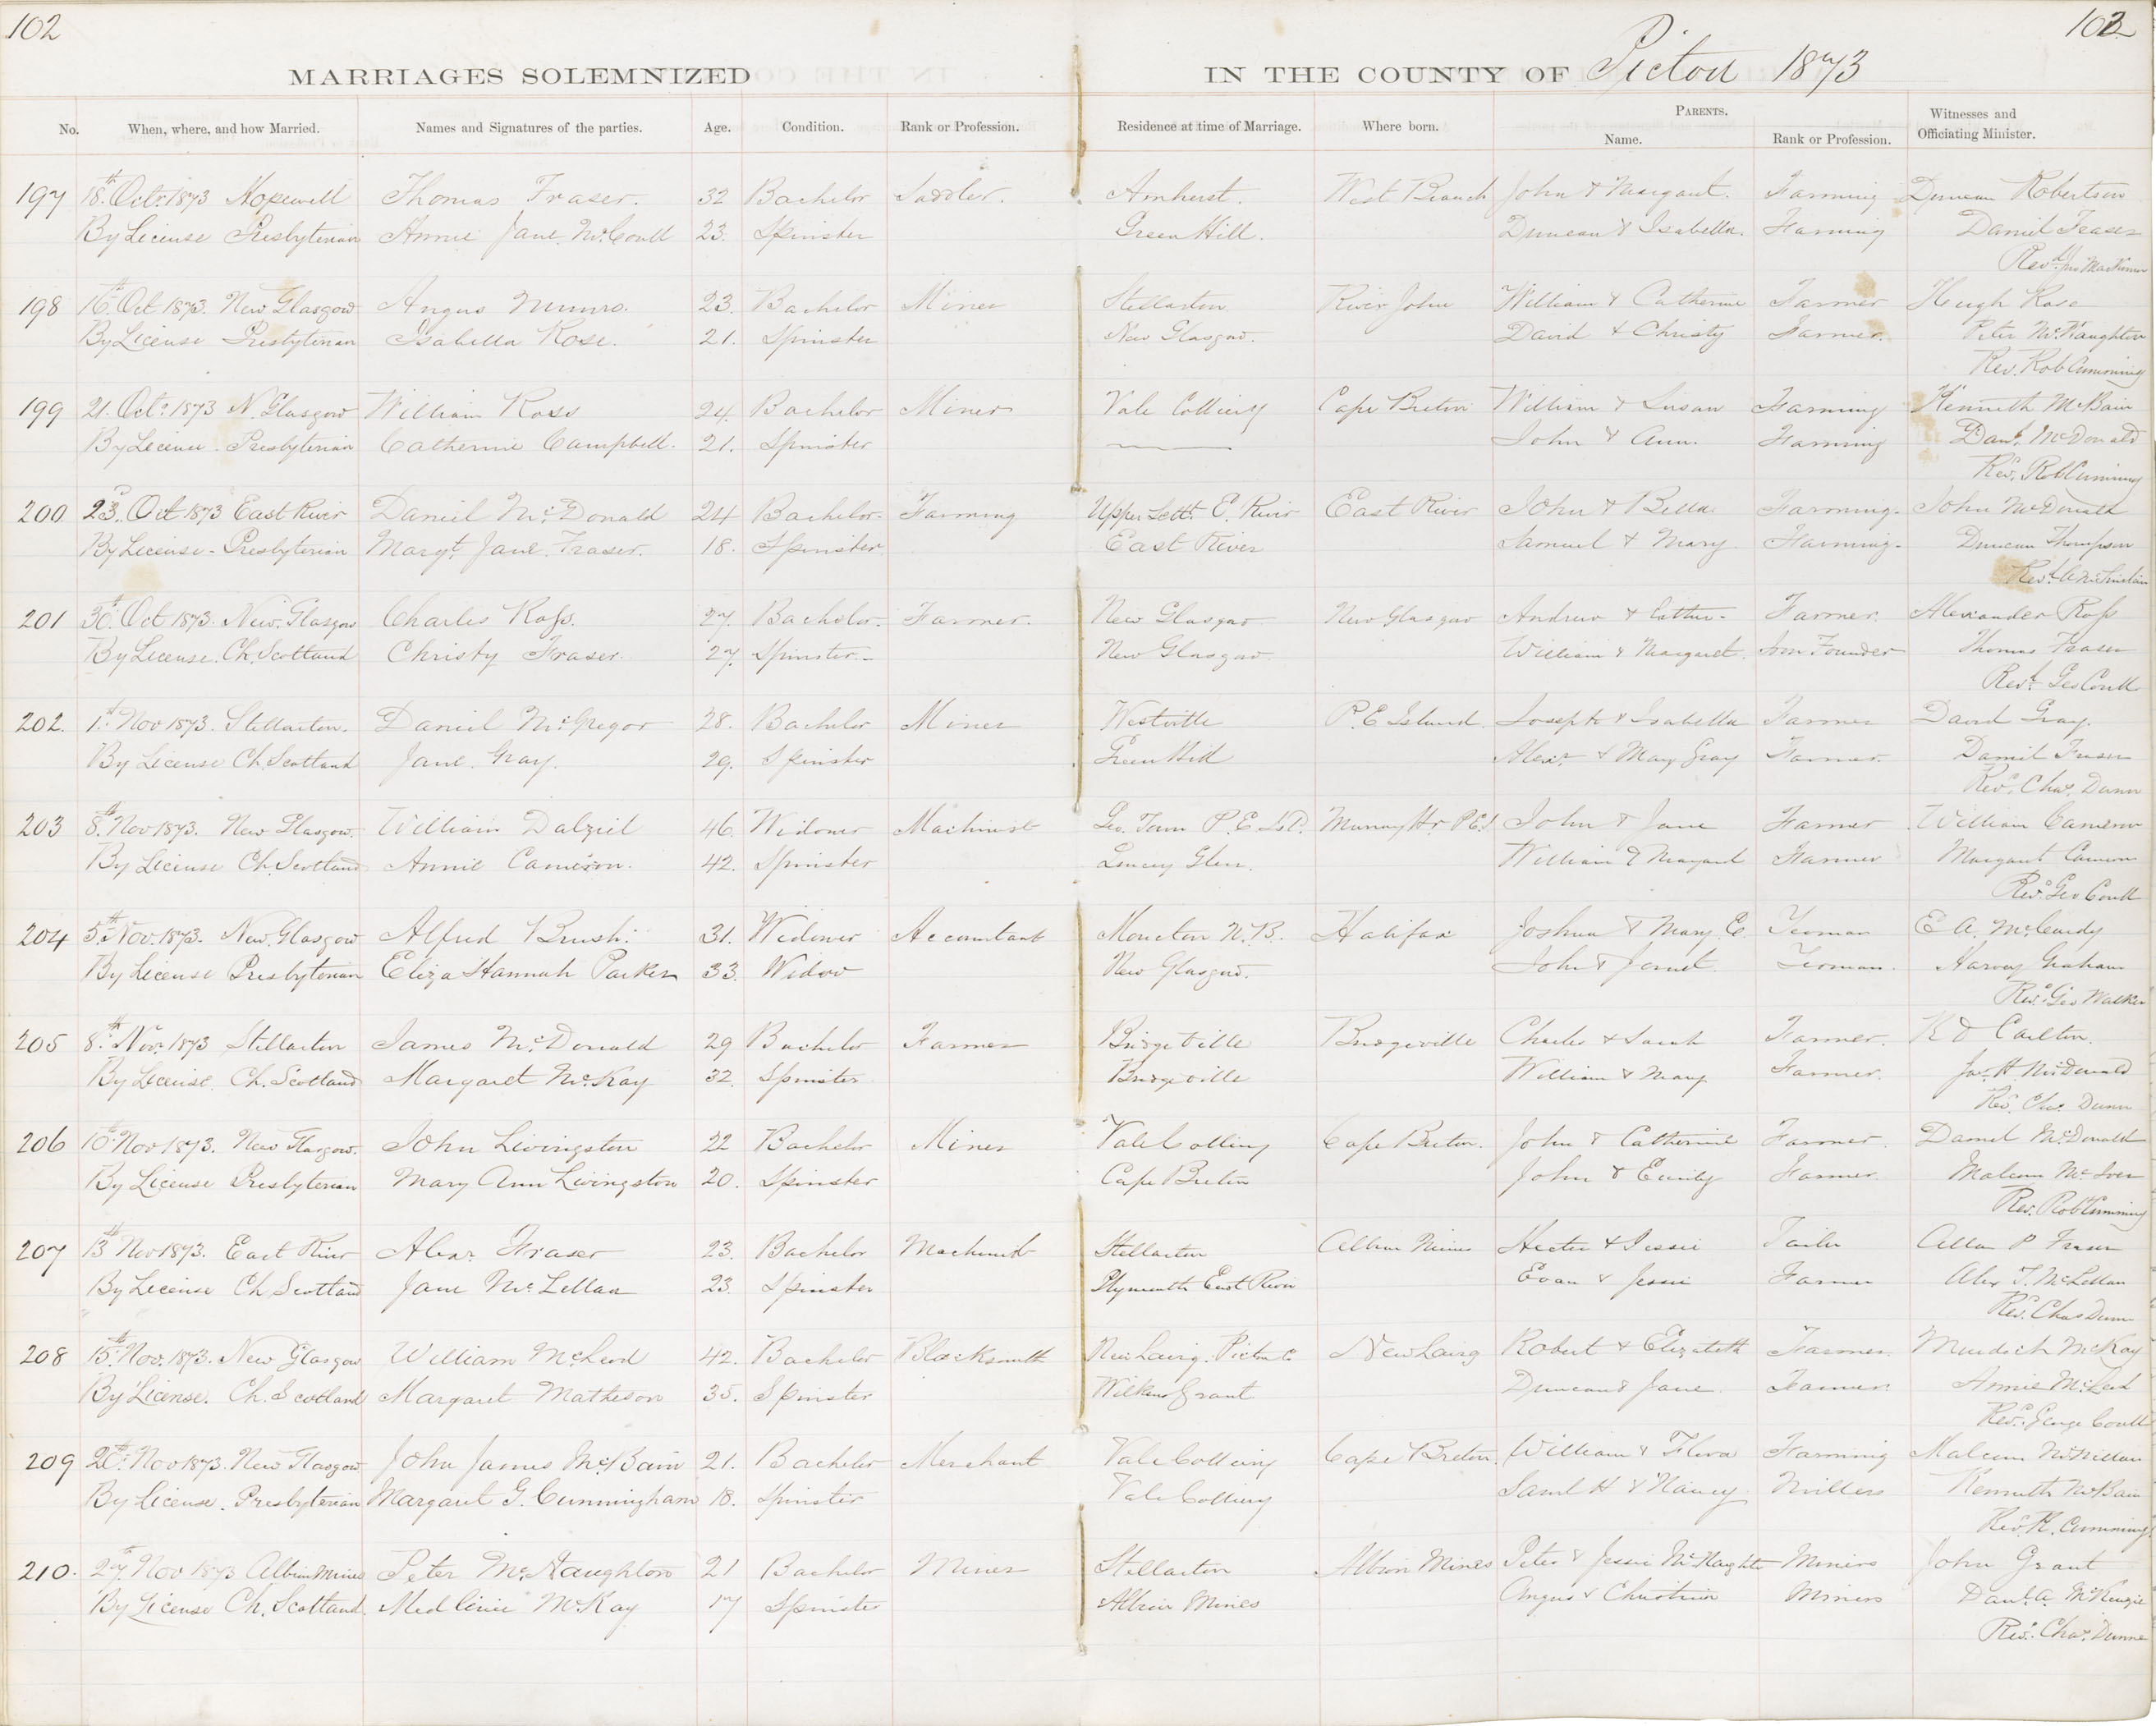 102
103
MARRIAGES SOLEMNIZED IN THE COUNTY OF Pictou 1873
No. When, where, and how Married. Names and Signatures of the parties. Age. Condition. Rank or Profession. Residence at time of Marriage. Where born. PARENTS. Name. Rank or Profession. Witnesses and Officiating Minister.
197 18th Octr 1873 Hopewell Thomas Fraser. 32 Bachelor Saddler. Amherst. West Branch John & Margaret. Farming Duncan Robertson
By License Presbyterian Annie Jane McCoull 23. Spinster Green Hill. Duncan & Isabella. Farming Daniel Fraser
Revd
198 16th Oct 1873. New Glasgow Angus Munro. 23. Bachelor Miner Stellarton River John William & Catherine Farmer Hugh Rose
By License Presbyterian Isabella Rose. 21. Spinster New Glasgow. David & Christy Farmer. Peter McNaughton
Rev. Rob Cumming
199 21. Octr 1873 N. Glasgow William Ross 24. Bachelor Miner Vale Colliery Cape Breton William & Susan Farming Kenneth McBain
By License. Presbyterian Catherine Campbell. 21. Spinster — John & Ann. Farming Danl McDonald
Revd. Rob Cumming
200 23d. Oct 1873 East River Daniel McDonald 24 Bachelor. Farming Upper Settt. E. River East River John & Bella. Farming. John McDonald
By License - Presbyterian Margt. Jane Fraser. 18. Spinster. East River Samuel & Mary Farming. Duncan Thompson
Revd. A McSinclair
201 30th Oct 1873. New Glasgow Charles Ross. 27. Bachelor. Farmer. New Glasgow New Glasgow Andrew & Esther Farmer. Alexander Ross
By License. Ch. Scotland Christy Fraser. 27. Spinster New Glasgow William & Margaret. Iron Founder Thomas Fraser
Revd. Geo Coull
202. 1st Nov 1873. Stellarton. Daniel McGregor 28. Bachelor Miner Westville P. E Island. Joseph & Isabella Farmer David Gray.
By License Ch. Scotland Jane. Gray. 29. Spinster Green Hill Alexr. & Mary Gray Farmer. Daniel Fraser
Revd. Chas. Dunn
203 8th. Nov 1873. New Glasgow. William Dalziel 46. Widower Machinist Geo. Town P. E Isld. Murray Hr P E I. John & Jane Farmer William Cameron
By License Ch. Scotland Annie Cameron. 42. Spinster Glen. William & Margaret Farmer Margaret Cameron
Revd. Geo Coull
204 5th Nov. 1873. New Glasgow Alfred Brush. 31. Widower Accountant Moncton N. B. Halifax Joshua & Mary E. Yeoman E A. McCurdy
By License Presbyterian Eliza Hannah Parker 33. Widow New Glasgow. John & Jernet. Yeoman. Harvey Graham
Revd. Geo Walker
205 8th Novr 1873 Stellarton James McDonald 29 Bachelor Farmer Bridgeville Bridgeville Charles & Sarah Farmer. Carlton.
By License. Ch. Scotland Margaret McKay 32. Spinster. Bridgeville William & Mary Farmer. Jas. H. McDonald
Revd. Chas. Dunn
206 10th Nov 1873. New Glasgow. John Livingston 22 Bachelor Miner Vale Colliery Cape Breton. John & Catherine Farmer. Daniel McDonald
By License Presbyterian Mary Ann Livingston 20. Spinster Cape Breton John & Emily Farmer. Malcom McIver
Rev. Rob Cumming
207 13th Nov 1873. East River Alexr. Fraser 23. Bachelor Machinist Stellarton Albion Mines Hector & Jessie Tailor Allan P Fraser
By License Ch. Scotland Jane McLellan 23. Spinster Plymouth East River Evan & Jessie Farmer Alex T. McLellan
Revd. Chas Dunn
208 15th. Nov. 1873. New Glasgow William McLeod 42. Bachelor Blacksmith New Lairg. Pictou C. New Lairg Robert & Elizabeth Farmer. Murdoch McKay
By License. Ch. Scotland Margaret Matheson 35. Spinster Wilkins Grant Duncan & Jane. Farmer. Annie McLeod
Revd. George Coull
209 20th. Nov 1873. New Glasgow John James McBain 21. Bachelor Merchant Vale Colliery Cape Breton. William & Flora Farming Malcom McMillan
By License. Presbyterian Margaret G. Cunningham 18. Spinster Vale Colliery Saml H & Nancy Millers Kenneth McBain
Revd. R. Cumming
210. 27th Nov 1873 Albion Mines Peter McNaughton 21 Bachelor Miner Stellarton Albion Mines Peter & Jessie McNaughton Miners John Grant
By License Ch. Scotland. Medlinie McKay 17 Spinster Albion Mines Angus & Christina Miners Danl. A. McKenzie
Revd. Chas. Dunn